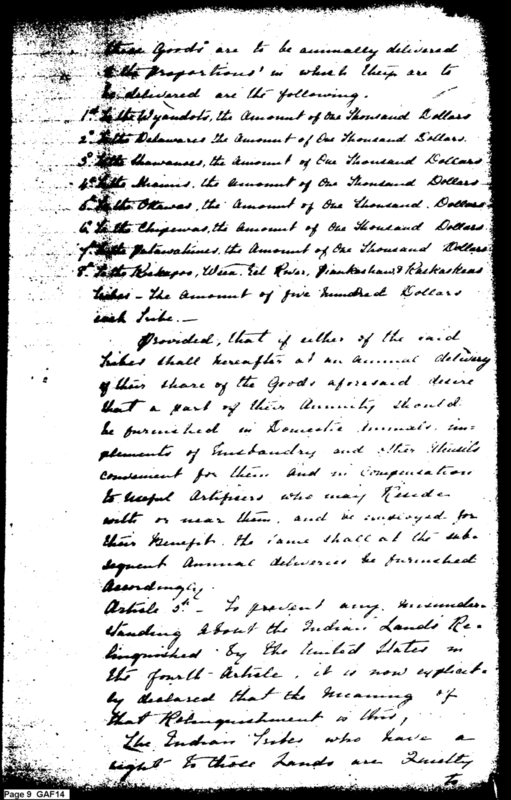 those Goods are to be annually delivered
& the proportions in which they are to
be delivered are the following.
1st To the Wyandots, the Amount of One Thousand Dollars
2d To the Delawares the Amount of One Thousand Dollars.
3d To the Shawanees, the Amount of One Thousand Dollars
4th To the Miamis, the Amount of One Thousand Dollars
5th To the Ottawas, the Amount of One Thousand Dollars
6th To the Chipewas, the Amount of One Thousand Dollars
7th To the Putawatimes, the Amount of One Thousand Dollars
8th To the Kickapoo, Weea, Eel River, Piankashaw & Kaskaskias
Tribes – The Amount of five hundred Dollars
each Tribe. —
Provided, that if either of the said
Tribes shall hereafter at an annual delivery
of their share of the Goods aforesaid desire
that a part of their Annuity should
be furnished in Domestic Animals, im-
plements of Husbandry and other Utensils
convenient for them and in compensation
to useful Artificers who may Reside
with or near them, and be employed for
their Benefit, the same shall at the sub-
sequent Annual deliveries be furnished
Accordingly.
Article 5th – To prevent any misunder-
standing about the Indian Lands Re-
linquished by the United States in
the fourth Article, it is now explicit-
ly declared that the Meaning of
that Relinquishment is this,
The Indian Tribes who have a
right to those Lands are Quietly
to
Page 9 GAF14